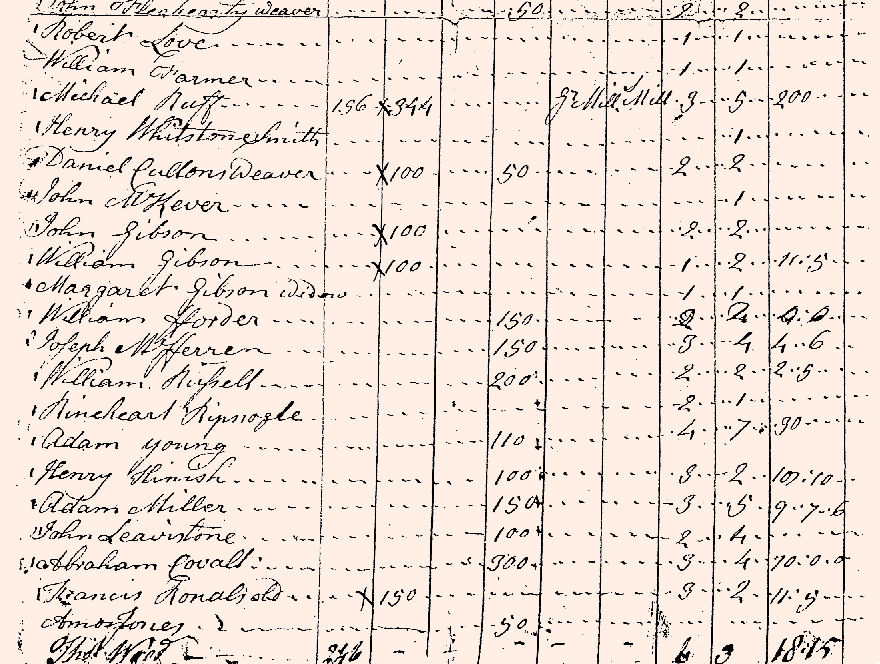 John weaver 50 2 2
Robert Love 1 1
William Farmer 1 1
Michael Ruff 156 X344 Gr Mill Mill 3 5 200
Henry Whitstone Smith 1
Daniel Cullons Weaver X100 50 2 2
John McKever 1
John Gibson X100 2 2
William Gibson X100 1 2 11.5
Margaret Gibson widow 1 1
William fforder 150 2
Joseph Mcfferren 150 3 4 4 6
William Russell 200 2 2 2.5
Rineheart Ripnogle 2 1
Adam young 110 4 7 30
Henry Hinish 100 3 2
Adam Miller 150 3 5 9.7.6
John Leavistone 100 2 4
Abraham Covalt 300 3 4 70.0.0
Francis Ronalsold X150 3 2 11.5
Amos Jones 50
Thos Wood 246 6 3 18.15